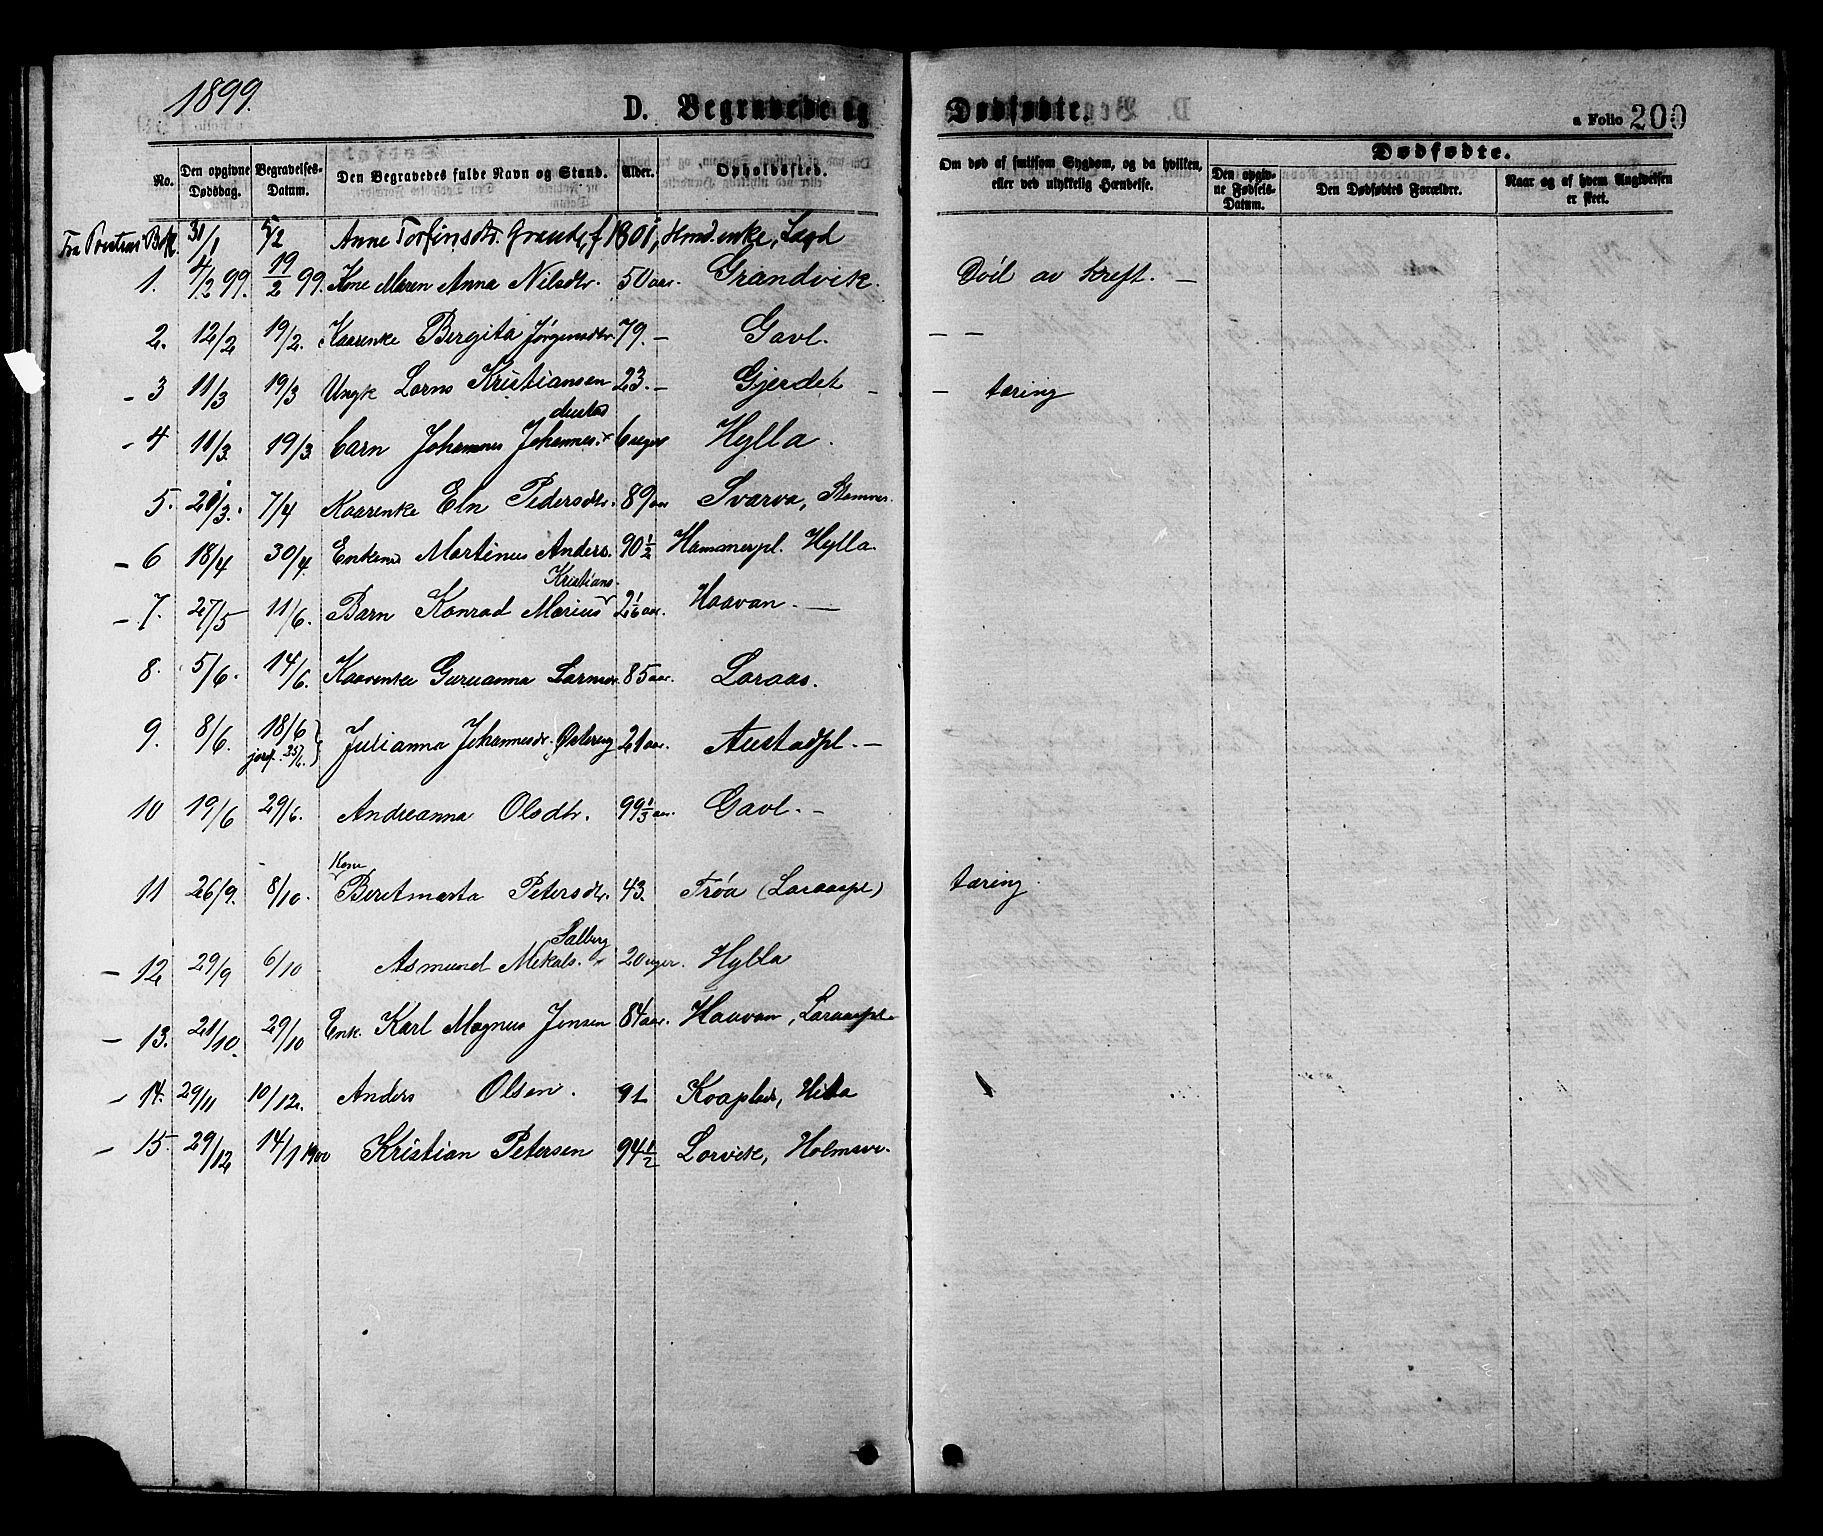 1899.
D. Begravede og Dødfødte. a Folio 200
No. Den opgivne Dødsdag. Begravelses-Datum. Den Begravedes fulde Navn og Stand. Alder. Opholdssted. Om død af smitsom Sygdom, og da hvilken, eller ved ulykkelig Hændelse. Dødfødte. Den opgivne Fødsels-Datum. Den Dødfødtes Forældre. Naar og af hvem Angivelsen er skeet.
Fra Prestens Bok. 31/1 5/2 Anne Torfinsdtr. Grande, f 1801, enke,
1. 4/2 99. 19/2 99. Kone Maren Anna Nilsdtr. 50 aar. Grandvik. Död av kreft. —
2. 12/2 19/2. Kaarenke Bergita Jørgensdtr 79. — Gavl. — —
- 3 11/3 19/3 Ungk Lorns Kristiansen 23. — Gjerdet — — tæring
- 4 11/3. 19/3. barn Johannes Johannes. 6 uger Hylla.
5. 20/3. 7/4 Kaarenke Eln Pedersdtr. 89 aar Svarva,
- 6 18/4 30/4. Enkem Martinus Anders. 90 1/2 Hammerpl. Hylla.
- 7. 27/5 11/6. Barn Konrad Marius Kristians. 2 1/6 aar. Haavan. —
8. 5/6. 14/6. Kaarenke Guruanna Larnsdr. 85 aar. Loraas.
9. 8/6. 18/6 jordf. 25/6. Julianna Johannesdr. Østereng 21 aar. Austadpl. —
10 19/6 29/6. Andreanna Olsdtr. 99 1/3 aar. Gavl. —
11 26/9. 8/10. Kone Beretmarta Petersdtr. 43. Trøa (Loraaspl) tæring.
- 12 29/9 6/10 Asmund Mekals. Salberg 20 uger. Hylla
- 13. 21/10. 29/10 Enk. Karl Magnus Jensen 84 aar. Haavan, Loraaspl.
- 14. 29/11 10/12. Anders Olsen. 91 Koaplads,
- 15. 29/12 14/1 1900 Kristian Petersen 94 1/2 Lorvik, Holmsve.